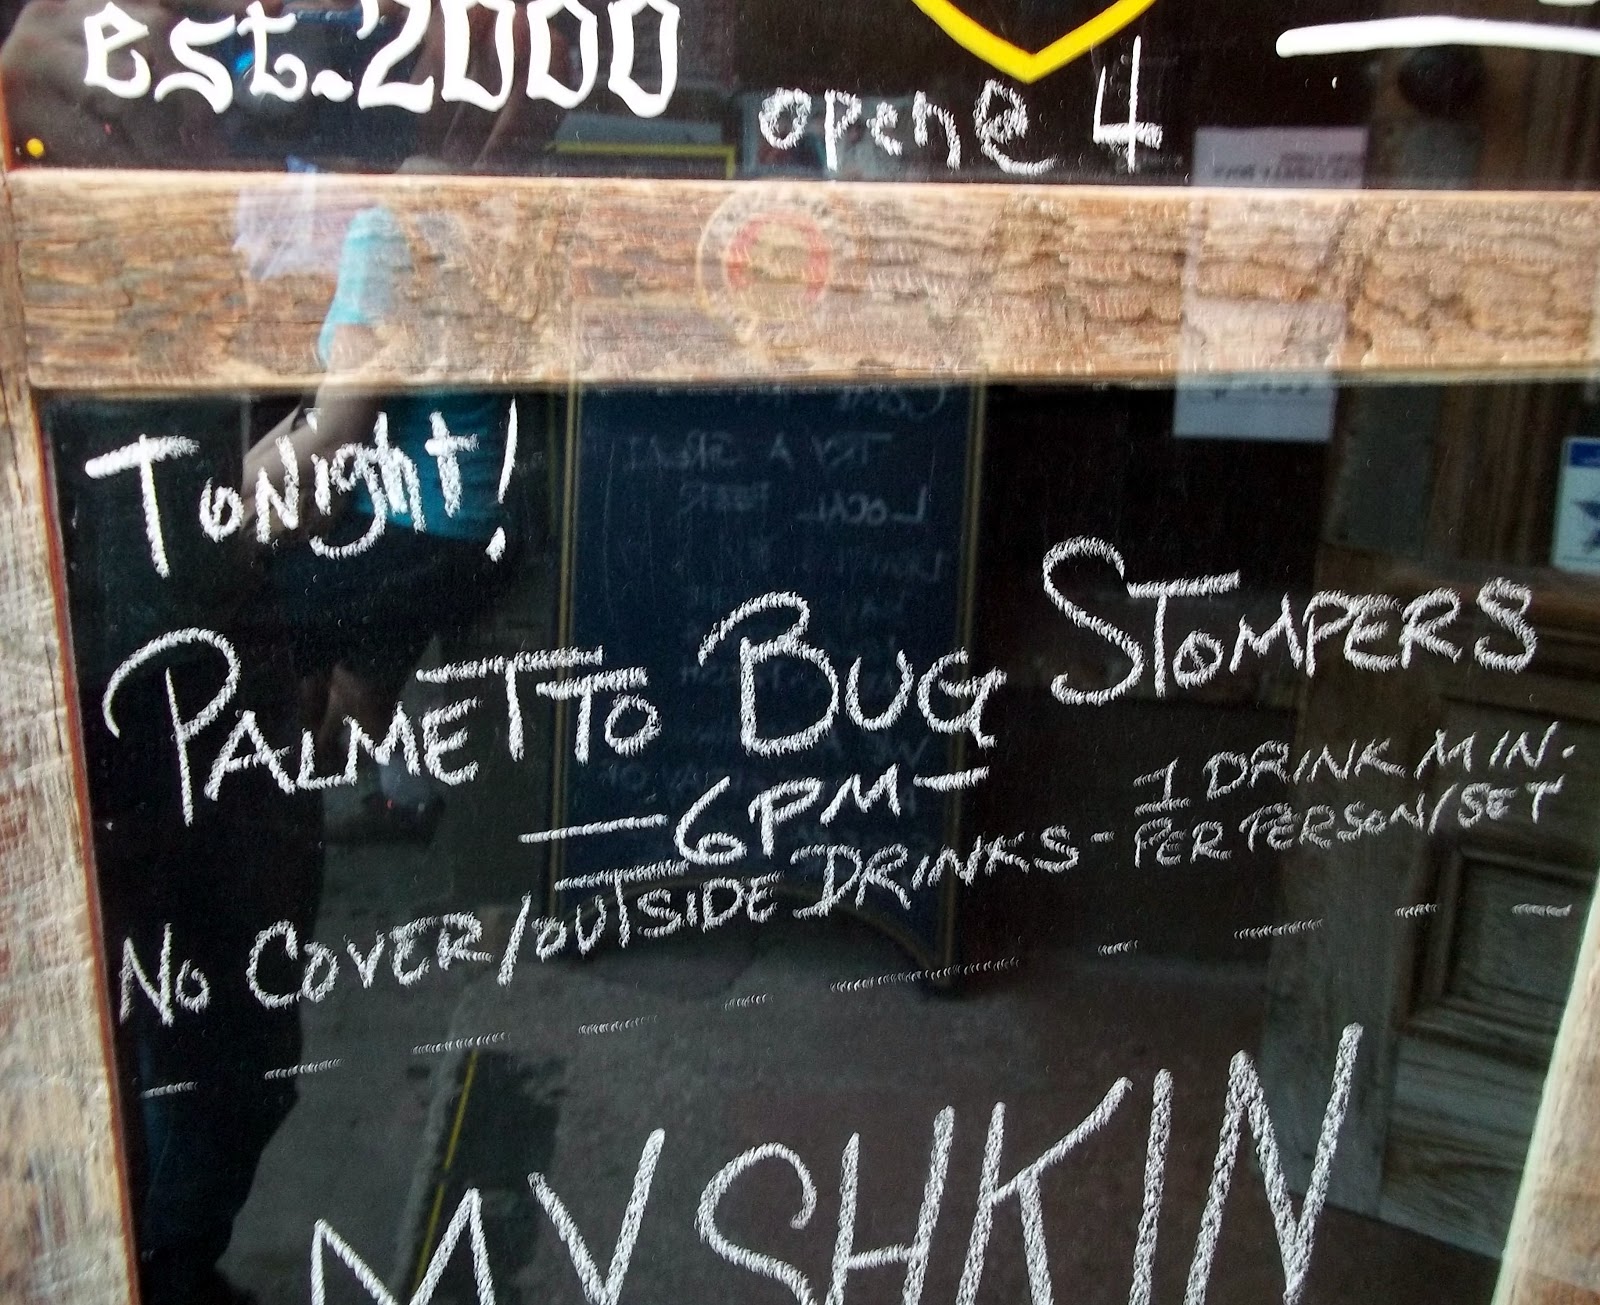 est. 2000
opene 4
Tonight!
PALMETTO BUG STOMPERS
— 6PM —
NO COVER/OUTSIDE DRINKS - 1 DRINK MIN.
PER PERSON/SET
MYSHKIN
TRY A GREAT
LOCAL BEER